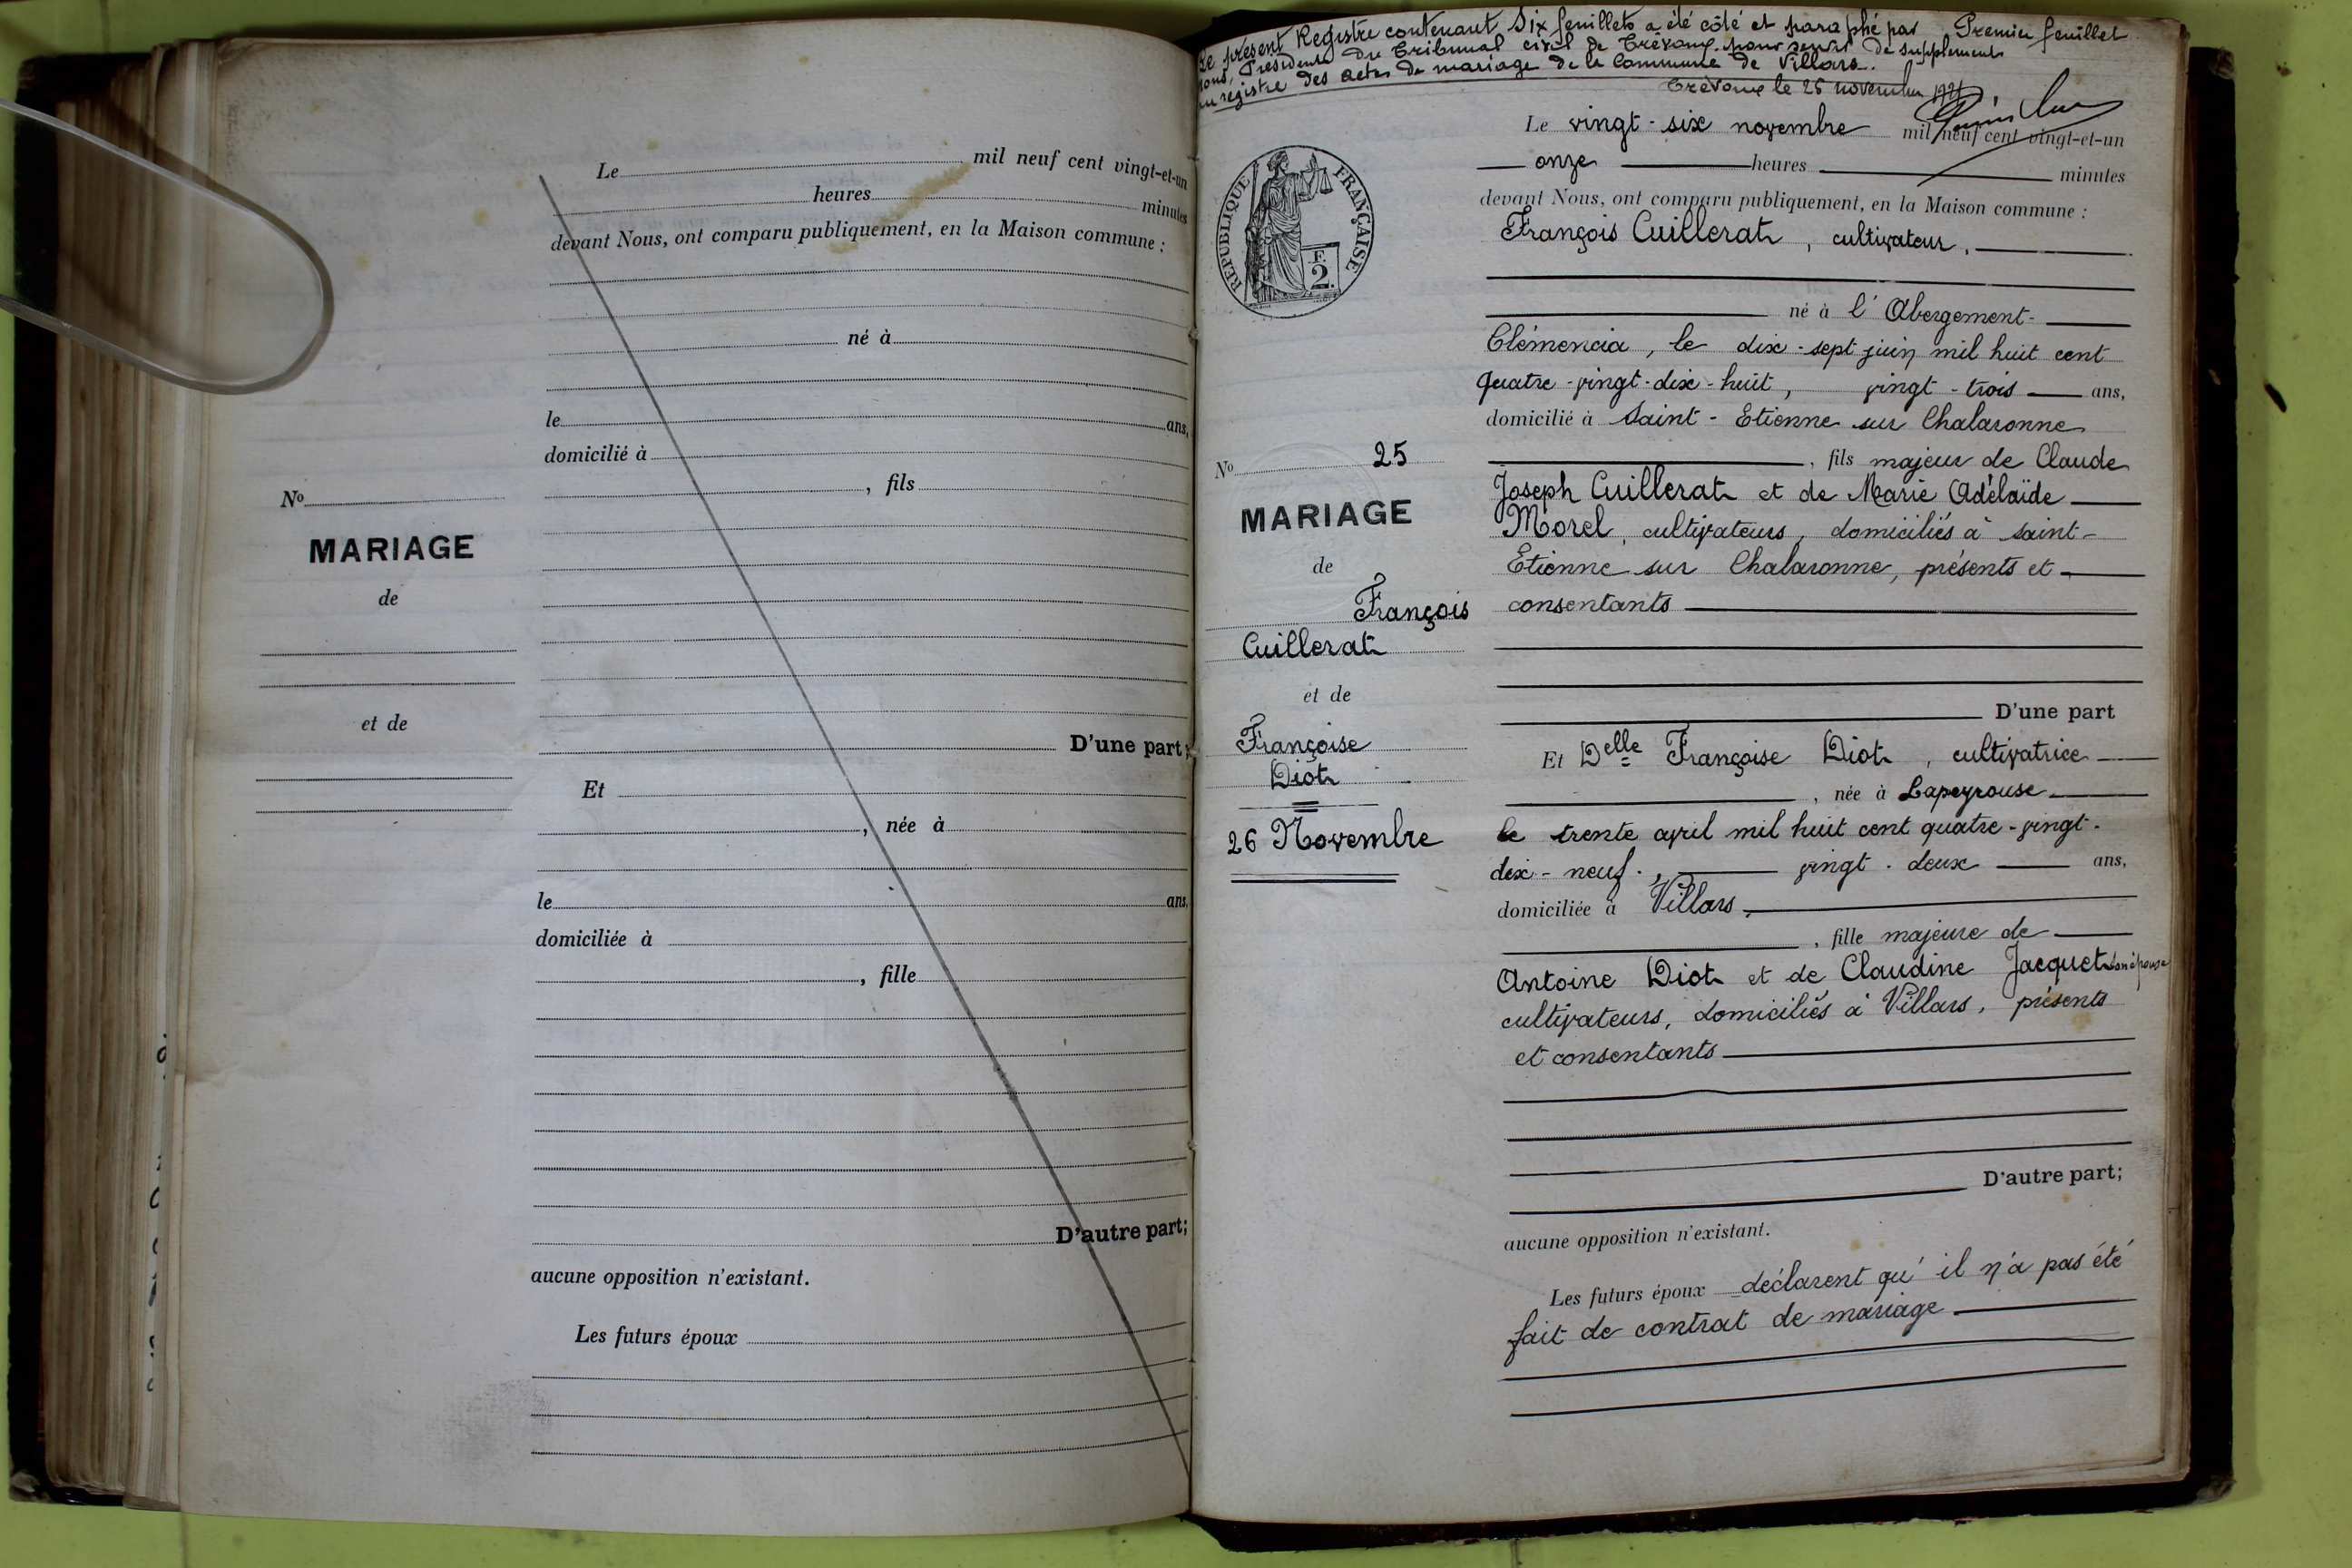 Le mil neuf cent vingt-et-un
heures minutes
devant Nous, ont comparu publiquement, en la Maison commune :
né à
le ans,
domicilié à
, fils
No
MARIAGE
de
et de
D'une part ;
Et
, née à
le ans,
domiciliée à
, fille
D'autre part;
aucune opposition n'existant.
Les futurs époux
Le présent Registre contenant Six feuillets a été côté et paraphé par Premier feuillet
nous, Président du Tribunal civil de Trévoux pour servir de supplément
au registre des actes de mariage de la Commune de Villars.
Trévoux le 25 novembre 1921
REPUBLIQUE FRANÇAISE
F.
2.
No 25
MARIAGE
de
François
Cuillerat
et de
Françoise
Diot
26 Novembre
Le vingt-six novembre mil neuf cent vingt-et-un
onze heures minutes
devant Nous, ont comparu publiquement, en la Maison commune :
François Cuillerat, cultivateur,
né à l'Abergement-
Clémencia, le dix-sept juin mil huit cent
quatre-vingt-dix-huit, vingt-trois ans,
domicilié à Saint-Etienne sur Chalaronne
, fils majeur de Claude
Joseph Cuillerat et de Marie Adélaïde
Morel, cultivateurs, domiciliés à saint-
Etienne sur Chalaronne, présents et
consentants
D'une part
Et Delle Françoise Diot, cultivatrice
, née à Lapeyrouse
le trente avril mil huit cent quatre-vingt-
dix-neuf, vingt-deux ans,
domiciliée à Villars,
, fille majeure de
Antoine Diot et de Claudine Jacquet son épouse
cultivateurs, domiciliés à Villars, présents
et consentants
D'autre part;
aucune opposition n'existant.
Les futurs époux déclarent qu'il n'a pas été
fait de contrat de mariage